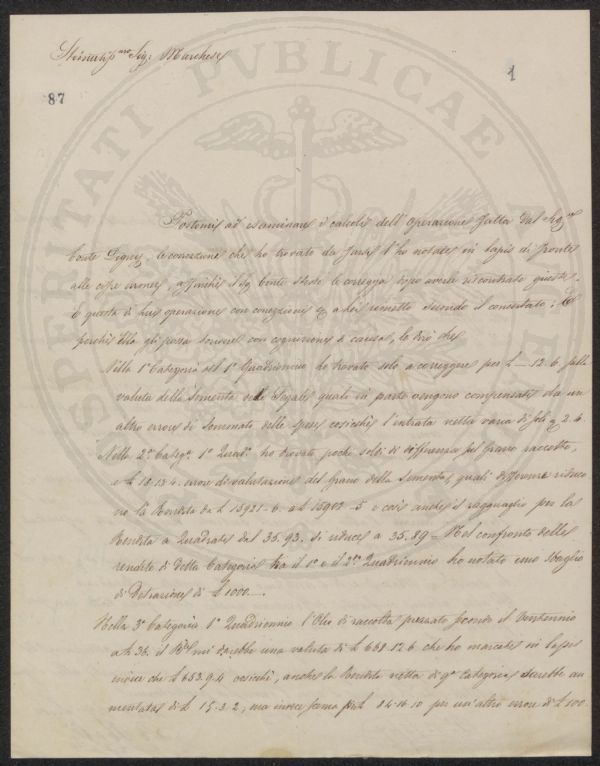 Stimatiss.mo Sig: Marchese
1
87
Portomi ad esaminare i calcoli dell'Operazione fatta dal Sig.r
Conte Digny, le correzioni che ho trovato da farsi l'ho notate in lapis di fronte
alle cifre erronee, affinchè il Sig. Conte stesso le corregga dopo averle riscontrate giuste.
E questa di lui operazione con correzioni a Lei rimetto secondo il concertato: E
perchè Ella gli possa scrivere con cognizione di causa, le dirò che
Nella 1a Categoria del 1o Quadriennio ho trovato solo a correggere per £ — 12.6 sulla
valuta della Sementa delle Segale quali in parte vengono compensate da un
altro errore di sommato delle spese cosicchè l'entrata netta varia di soli 2.4.
Nella 2a Categ.a 1o Quad.o ho trovato pochi soldi di differenza sul Grano raccolto,
e £ 18.13.4. errore di valutazione del Grano della Sementa quali differenze riduco
no la Rendita da £ 15921.6. a £ 15902.5 e così anche il ragguaglio per la
Rendita a Quadrati dal 35.93. si riduce a 35.89 = Nel confronto delle
rendite di detta Categoria tra il 1o e il 2o Quadriennio ho notato uno sbaglio
di Detrazione di £ 1000.—
Nella 3a Categoria 1o Quadriennio l'Olio di raccolta prezzato secondo il Ventennio
a £ 36. il B.le mi darebbe una valuta di £ 668.12.6 che ho marcato in lapis
invece che £ 653.9.4 cosicchè, anche la Rendita netta di q.a Categoria sarebbe au
mentata di £ 15.3.2, ma invece scema di £ 84.16.10 per un'altro errore di £ 100.